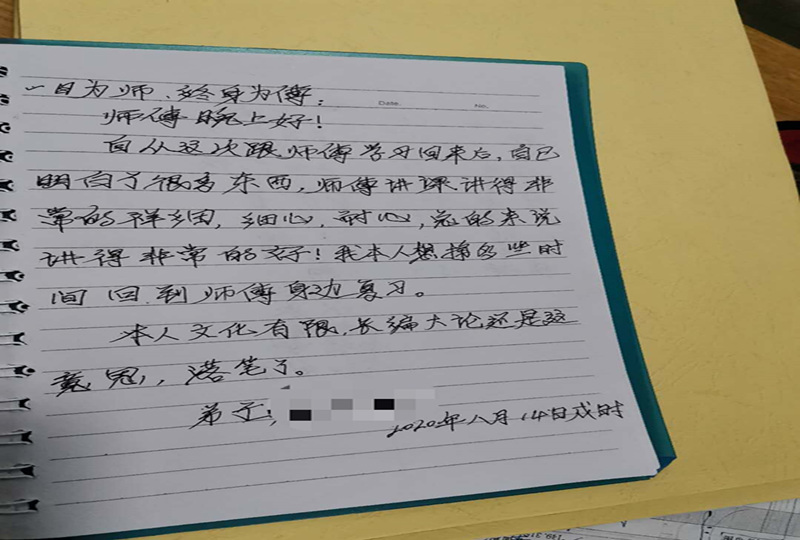 一日为师、终身为傅:
Date.
No.
师傅晚上好!
自从这次跟师傅学习回来后,自己
明白了很多东西,师傅讲课讲得非
常的详细,细心,耐心,总的来说
讲得非常的好!我本人想抽多些时
间回到师傅身边复习。
本人文化有限,长编大论还是这
意思,落笔了。
弟子:
2020年八月14日戌时